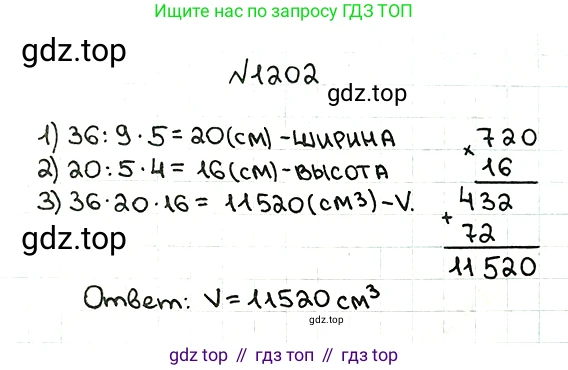 Ищите нас по запросу ГДЗ ТОП
gdz.top
№1202
gdz.top
1) 36:9·5=20(см)-ШИРИНА
2) 20:5·4=16(см)-ВЫСОТА
3) 36·20·16=11520(см3)-V.
× 720
16
432
+
72
11520
gdz.top
Ответ: V=11520 см³
gdz.top
gdz top // гдз топ // gdz.top // гдз топ